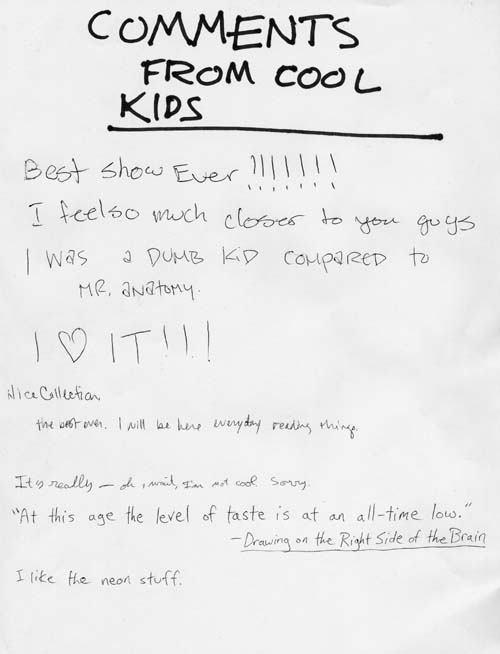 COMMENTS
FROM COOL
KIDS
Best show Ever !!!!!!!
I feel so much closer to you guys
I was a DUMB KiD COMPARED to
MR. anatomy.
I ♡ IT!!!
Nice Collection.
the best ever. I will be here everyday reading things.
It's really — oh, wait, I'm not cool. Sorry.
"At this age the level of taste is at an all-time low."
— Drawing on the Right Side of the Brain
I like the neon stuff.